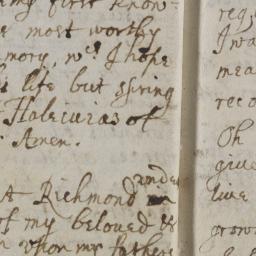 my first know-
most worthy
mory, wch I hope
life but spring
Haleluias of
Amen.
under
At Richmond in
of my beloved
upon my fathers
I wa
mea
reco
Oh
give
live
grow